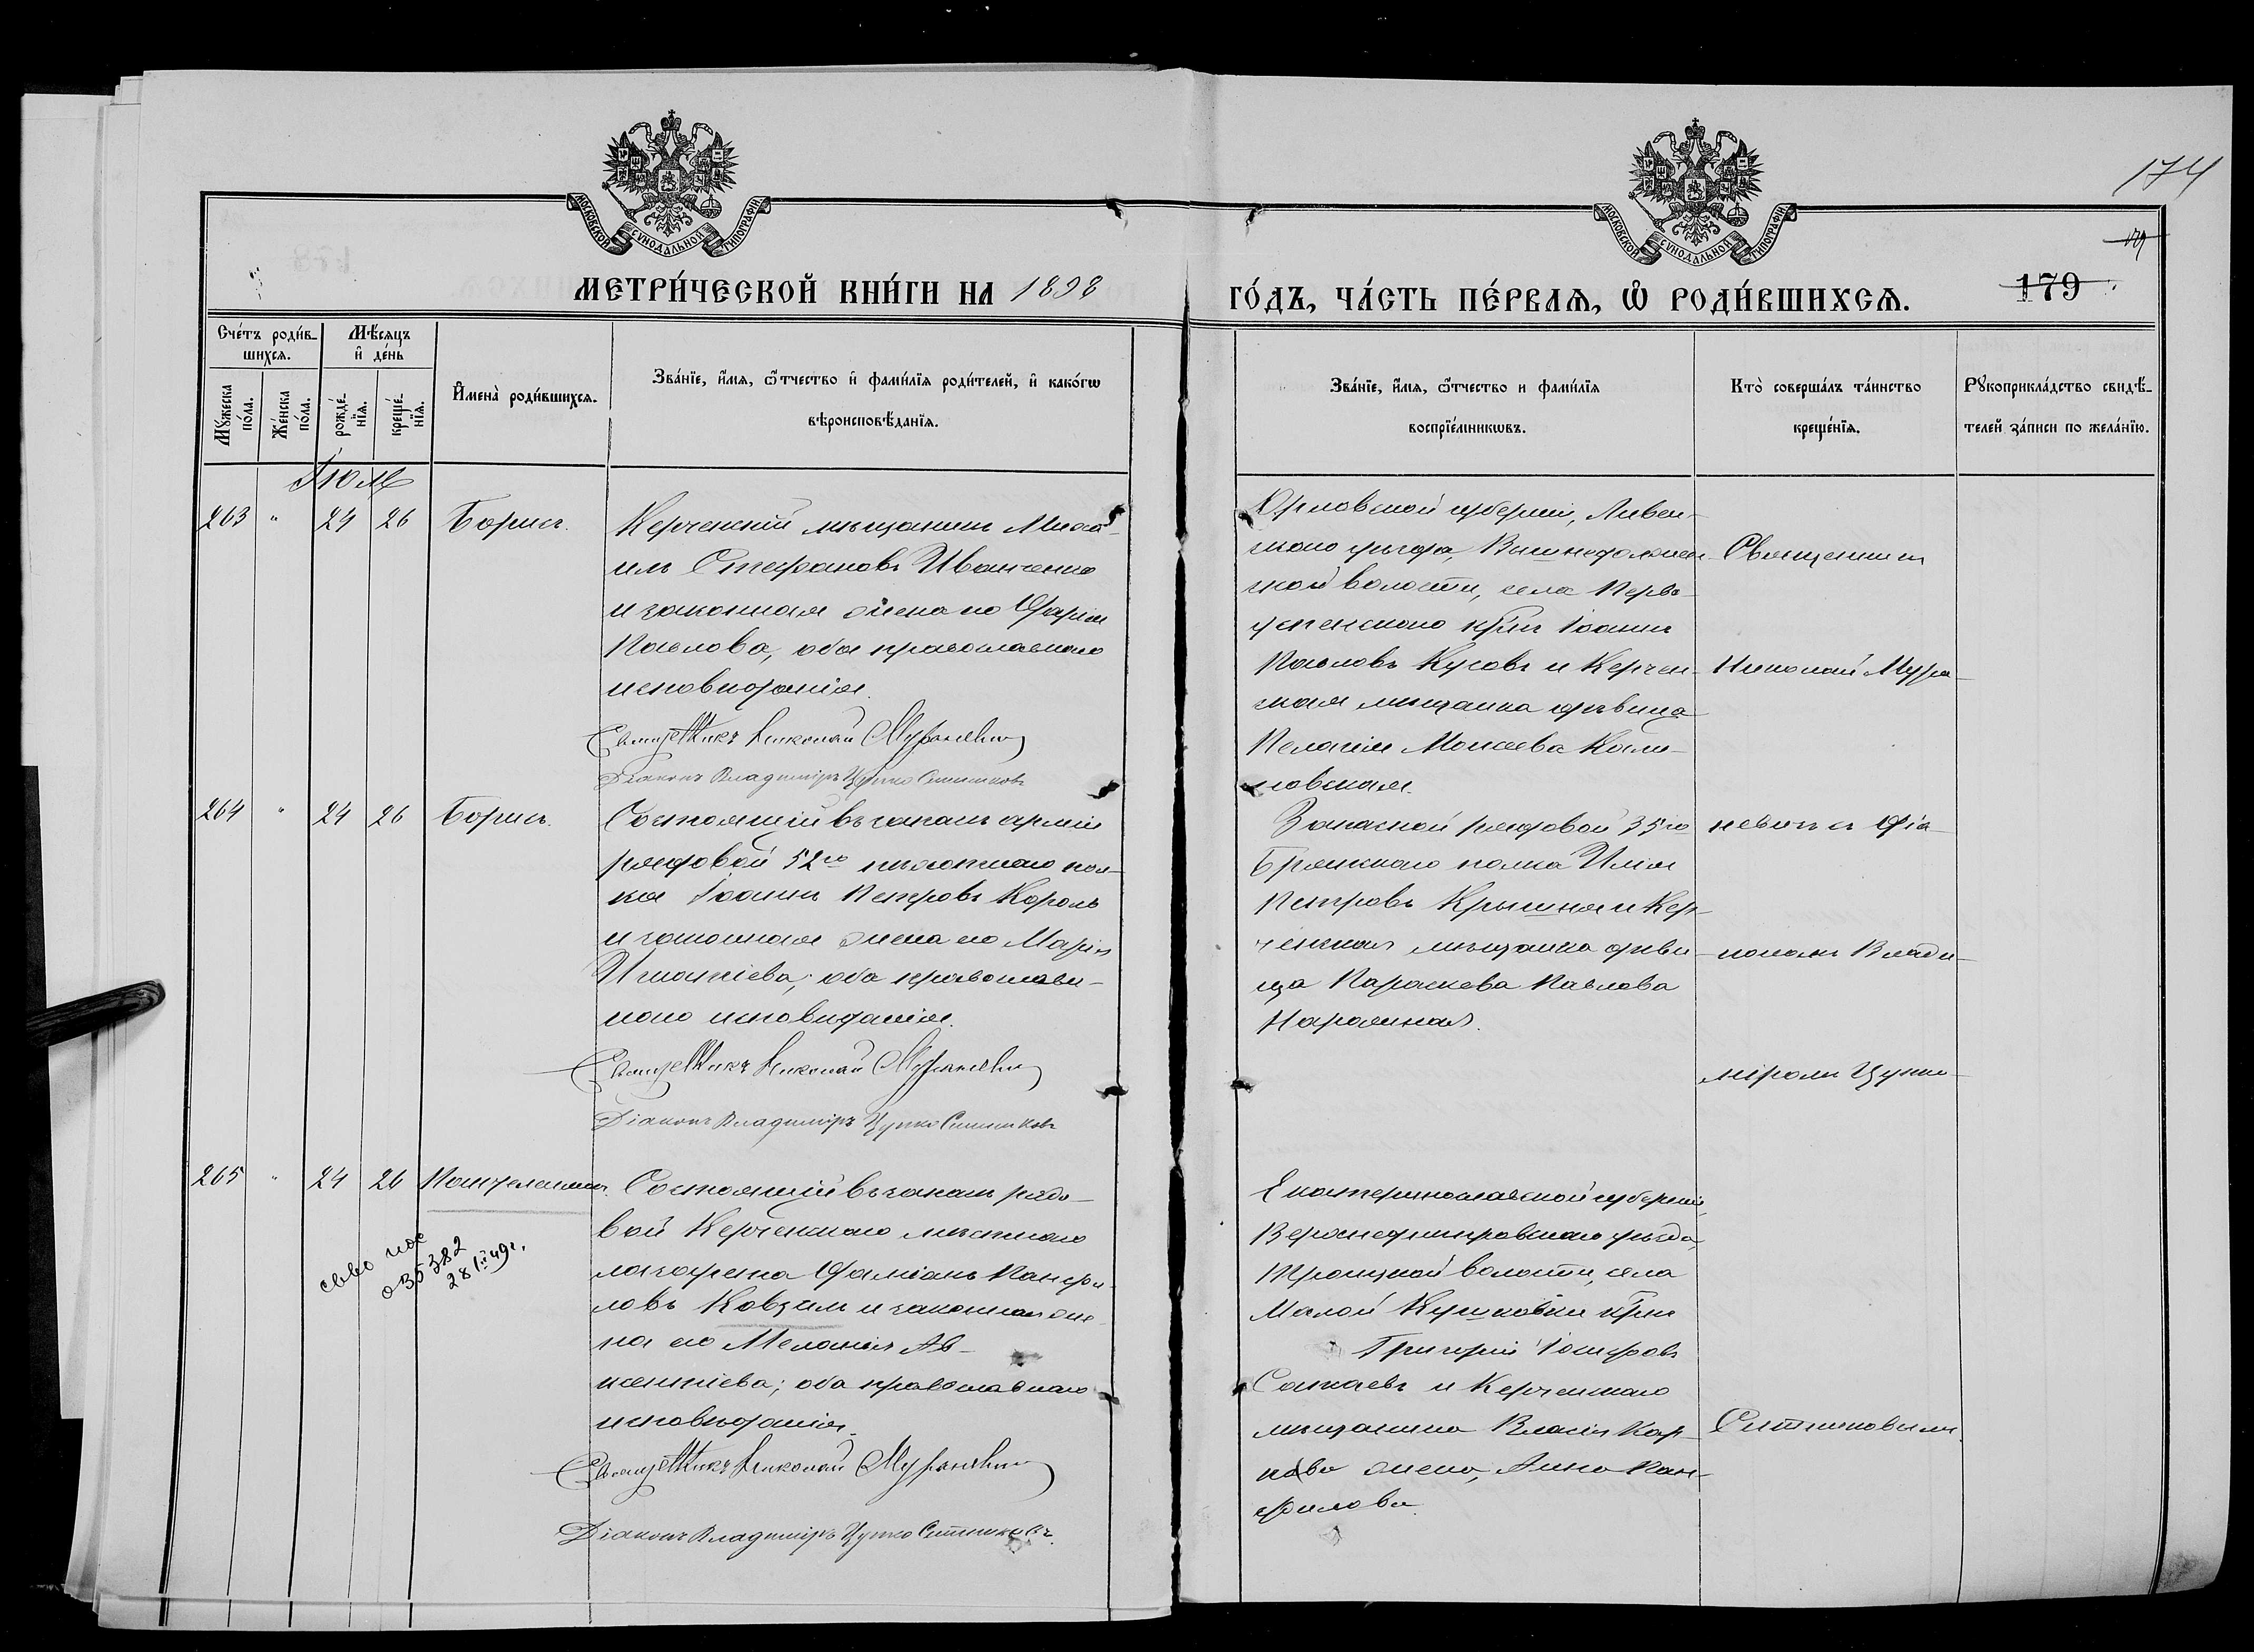 174
МОСКОВСКОЙ СУНОДАЛЬНОЙ ТИПОГРАФІИ
МОСКОВСКОЙ СУНОДАЛЬНОЙ ТИПОГРАФІИ
179
МЕТРИ́ЧЕСКОЙ КНИ́ГИ НА 1898
ГО́ДЪ, ЧА́СТЬ ПЕ́РВАѦ, Ѡ҆ РОДИ́ВШИХСѦ.
179
Сче́тъ роди́в-
шихсѧ.
Мꙋ́жеска по́ла.
Же́нска по́ла.
Мѣ́сѧцъ
и҆ де́нь
рожде́-нїѧ.
креще́-нїѧ.
И҆мена̀ роди́вшихсѧ.
Зва́нїе, и҆́мѧ, ѻ҆́тчество и҆ фами́лїѧ роди́телей, и҆ како́гѡ
вѣроисповѣ́данїѧ.
Зва́нїе, и҆́мѧ, ѻ҆́тчество и фами́лїѧ
воспрїе́мникѡвъ.
Кто̀ соверша́лъ та́инство
креще́нїѧ.
Рꙋкоприкла́дство свидѣ́-
телей за́писи по жела́нїю.
Іюль
263 " 24 26 Борисъ.
Керченскій мѣщанинъ Миха-
илъ Стефановъ Иванченко
и законная жена его Марія
Павлова, оба православнаго
исповѣданія.
Священникъ Николай Мураневичъ
Діаконъ Владиміръ Цупко Ситниковъ
Орловской губерніи, Ливен-
скаго уѣзда,
ской волости, села
Успенскаго кр-нъ Іоаннъ
Павловъ Кусовъ и Керчен-
ская мѣщанка дѣвица
Пелагія Моисеева Кали-
новская.
264 " 24 26 Борисъ.
Состоящій въ запасѣ арміи
рядовой 52го пѣхотнаго пол-
ка Іоаннъ Петровъ Король
и законная жена его Марія
Игнатіева, оба православ-
наго исповѣданія.
Священникъ Николай Мураневичъ
Діаконъ Владиміръ Цупко Ситниковъ
Запасной рядовой 35го
Брянскаго полка Илья
Петровъ и Кер-
ченская мѣщанка дѣви-
ца Параскева Павлова
265 " 24 26 Пантелеимонъ.
035382
Состоящій въ запасѣ рядо-
вой Керченскаго мѣстнаго
лазарета Даміанъ Панфи-
ловъ и законная же-
на его Меланія Ав-
ксентіева; оба православнаго
исповѣданія.
Священникъ Николай Мураневичъ
Діаконъ Владиміръ Цупко Ситниковъ.
Екатеринославской губерніи,
Верхнеднѣпровскаго уѣзда,
Троицкой волости, села
Малой кр-нъ
Григорій Іосифовъ
и Керченскаго
мѣщанина Власія Кар-
пова жена, Анна Пан-
филова.
Священникъ
Николай Мура-
невичъ съ діа-
кономъ Влади-
міромъ Цупко-
Ситниковымъ.